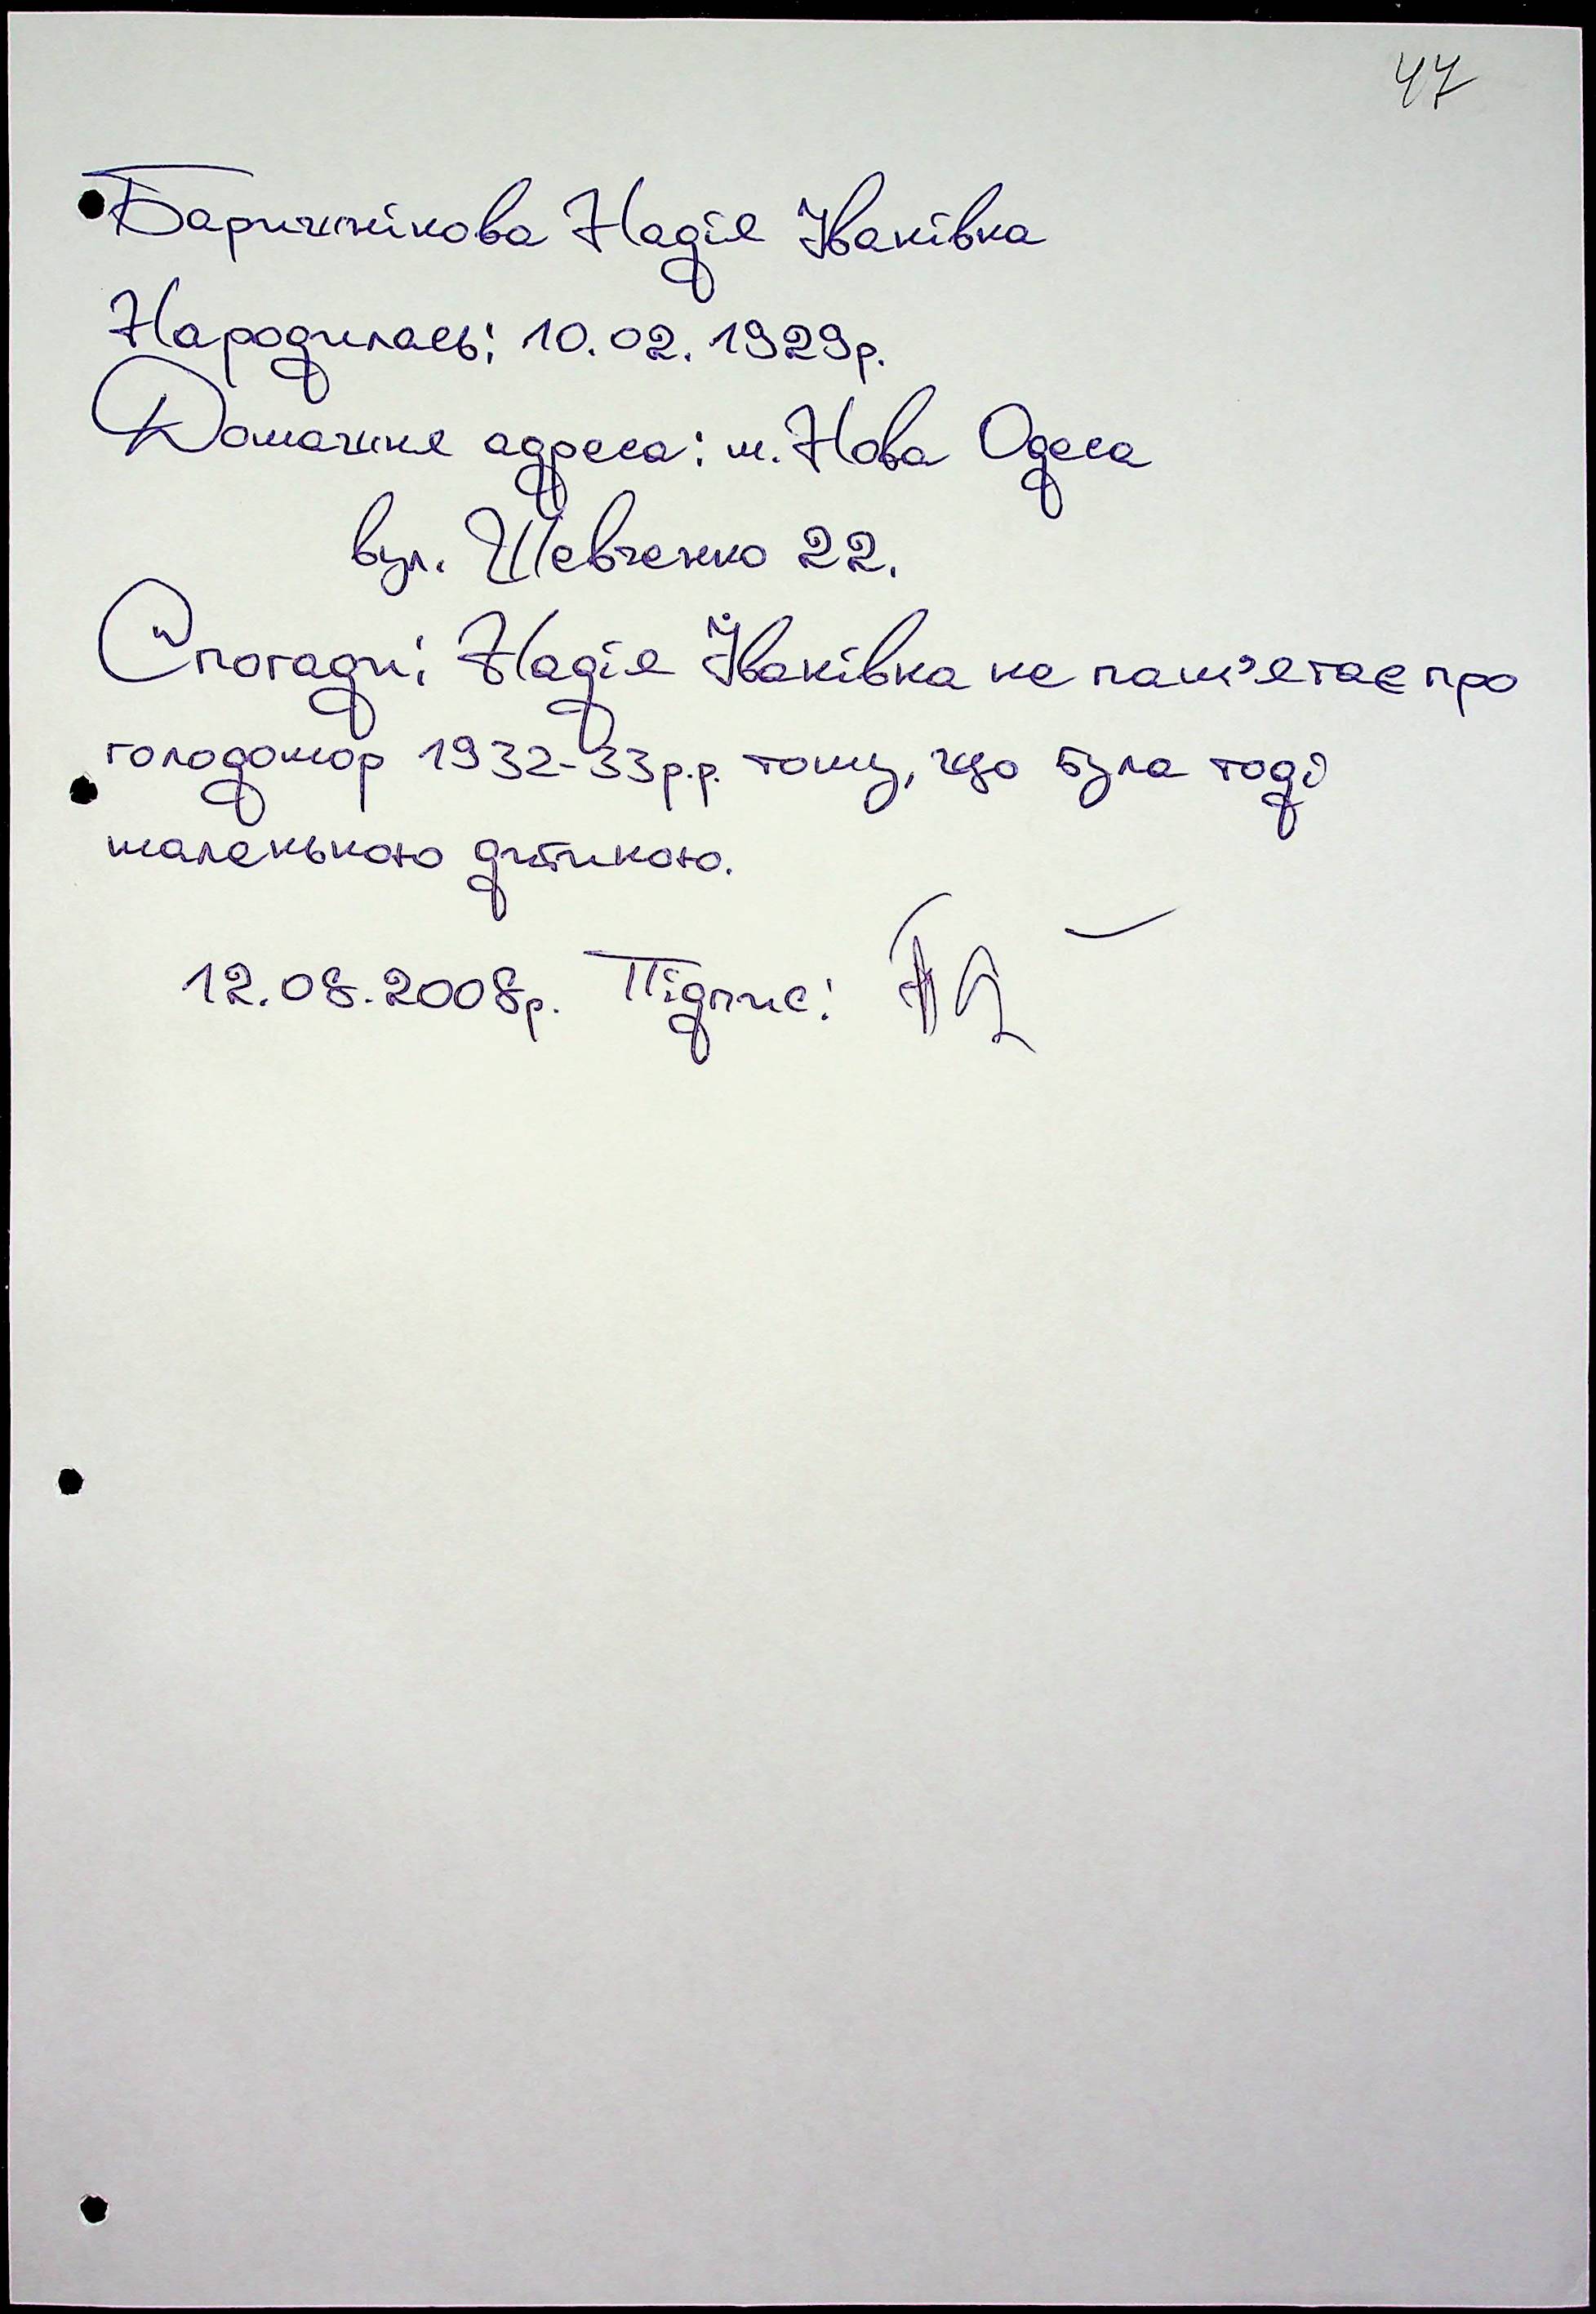 47
Баришнікова Надія Іванівна
Народилась: 10.02.1929р.
Домашня адреса: м. Нова Одеса
вул. Шевченко 22.
Спогади: Надія Іванівна не пам'ятає про
голодомор 1932-33р.р. тому, що була тоді
маленькою дитиною.
12.08.2008р. Підпис: